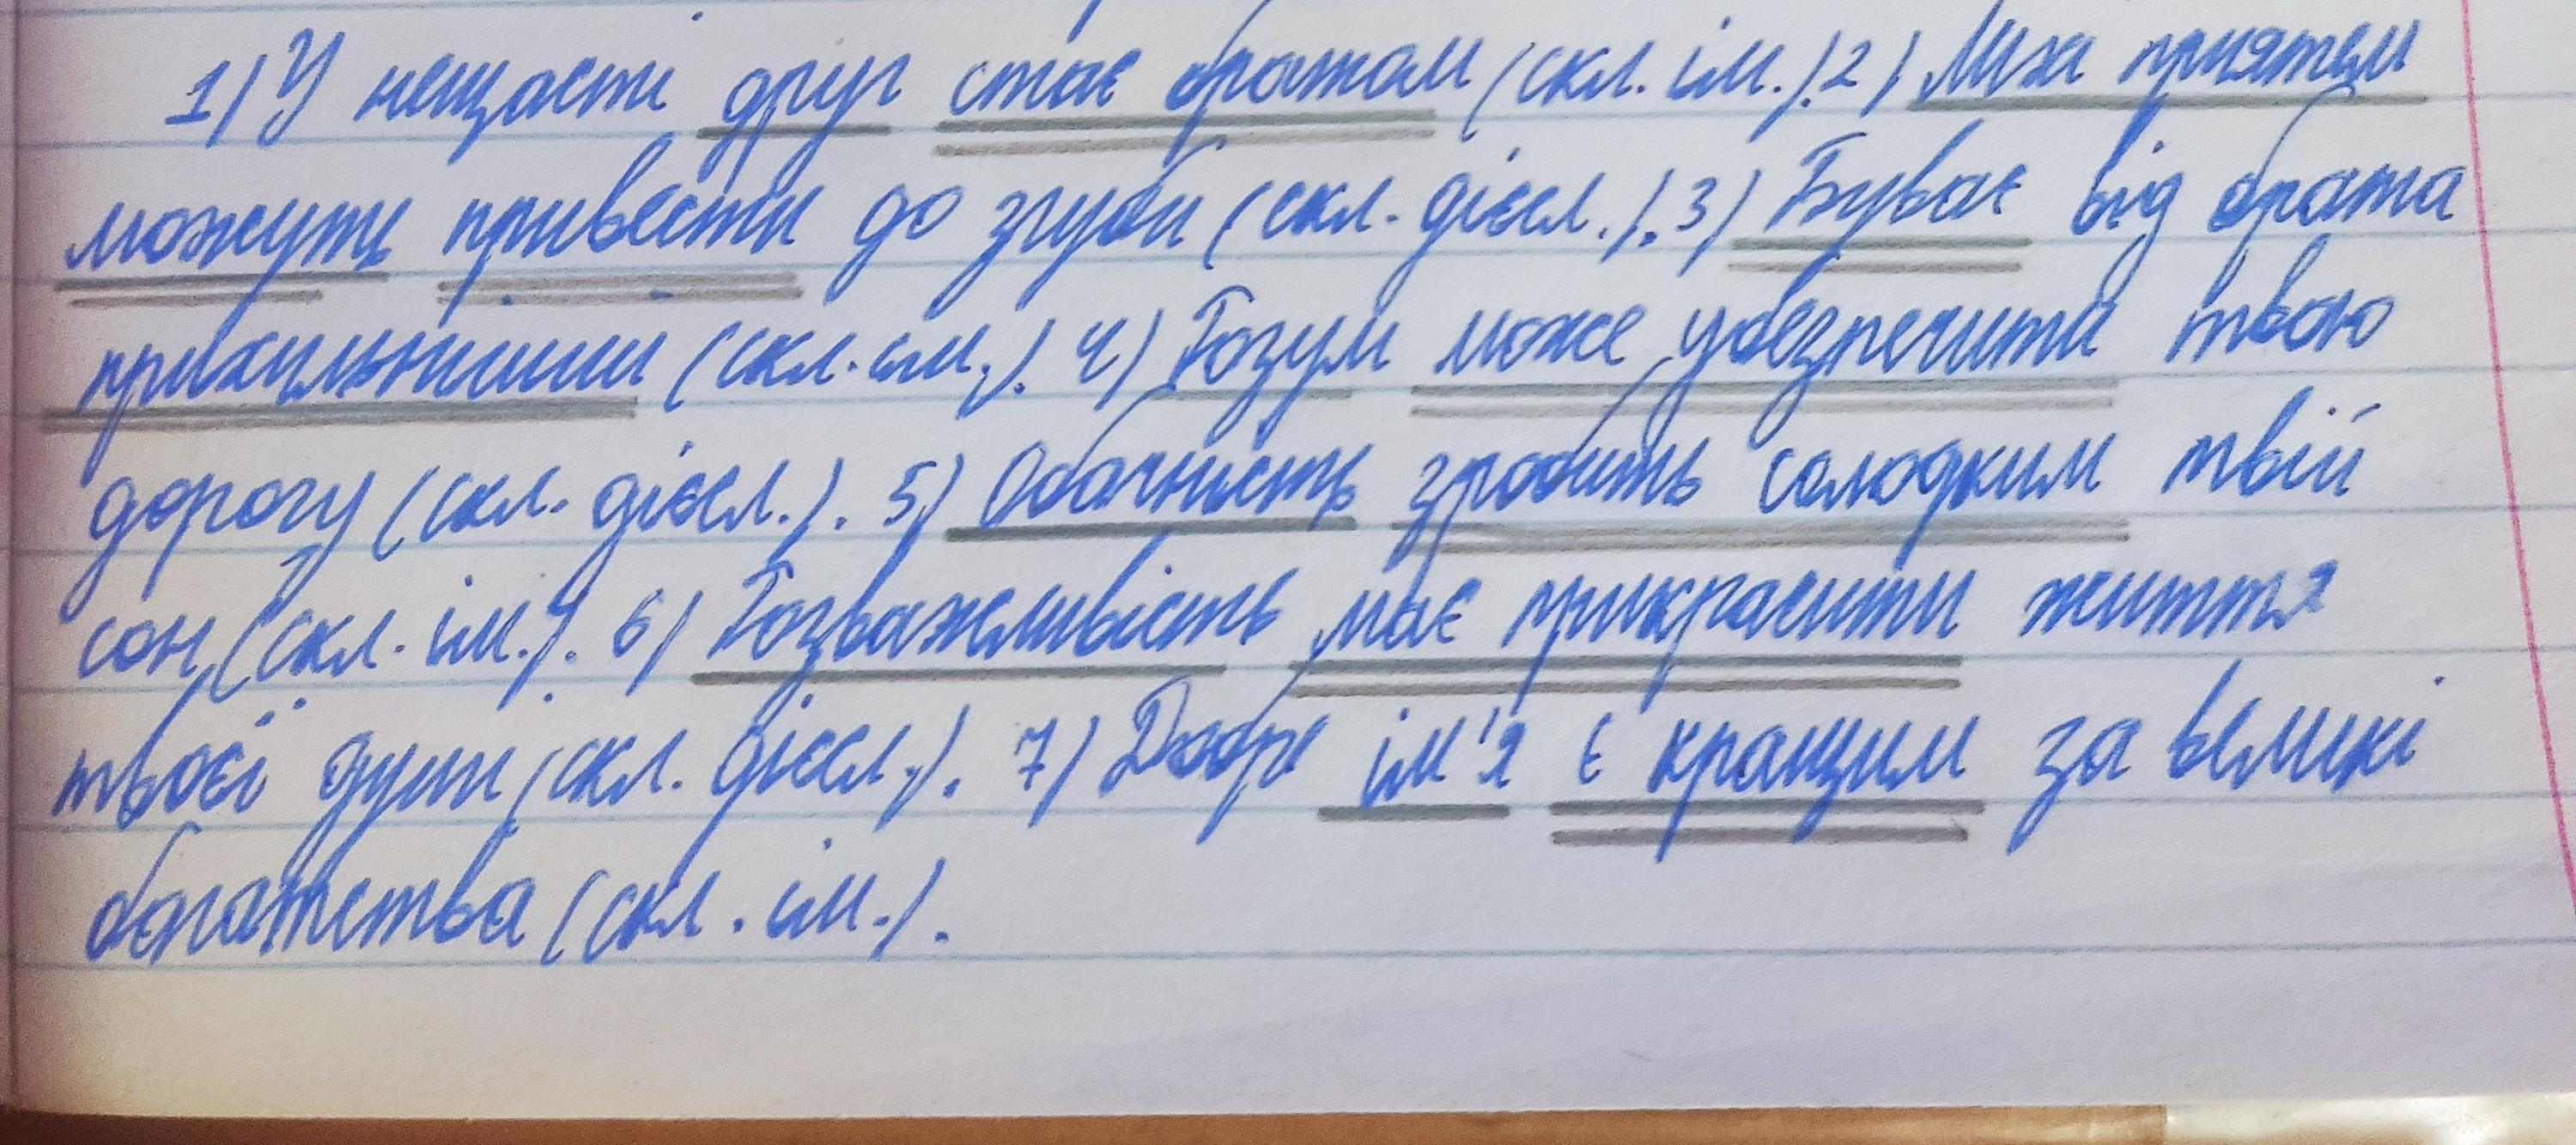 1) У нещасті друг стає братом (скл. ім.). 2) Лихі приятелі
можуть привести до згуби (скл. дієсл.). 3) Буває від брата
прихильніший (скл. ім.). 4) Розум може убезпечити твою
дорогу (скл. дієсл.). 5) Обачність зробить солодким твій
сон (скл. ім.). 6) Розважливість має прикрасити життя
твоєї душі (скл. дієсл.). 7) Добре ім'я є кращим за великі
багатства (скл. ім.).